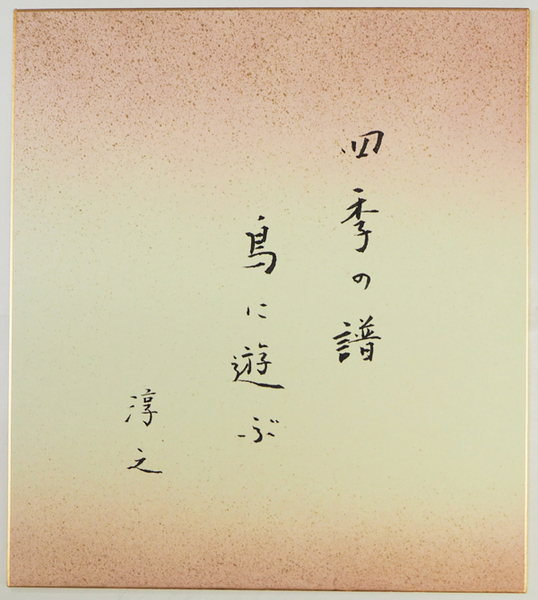 四季の譜
鳥に遊ぶ
淳之